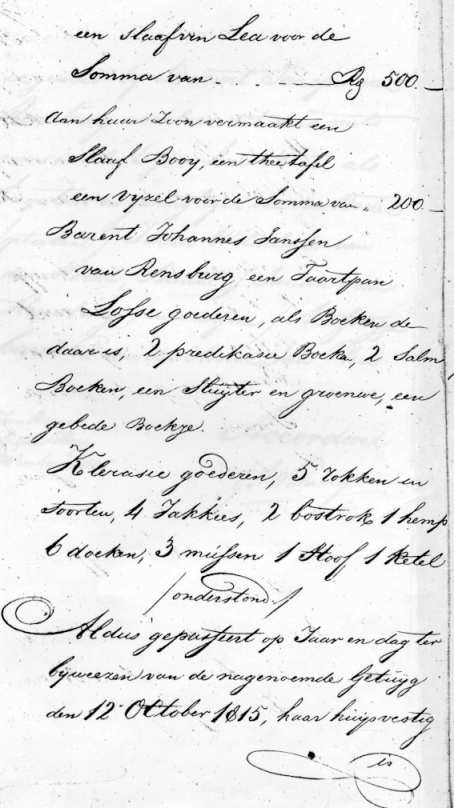 een slaafvin Lea voor de
Somma van . . . . . . . . Rg 500.—
Aan haar Zoon vermaakt een
Slaaf Booy, een theetafel
een vyzel voor de Somma van. 200 —
Barent Johannes Janssen
van Rensburg een Taartpan
Losse goederen, als Boeken de
daar is, 2 predikasie Boeke, 2 Salm
Boeken, een Sluyter en groenwe, een
gebede Boekje.
Klerasie goederen, 5 Rokken in
Soorten, 4 Jakkies, 2 bostrok 1 hemp
6 doeken, 3 mussen 1 Stoof 1 Ketel
/onderstond/
Aldus gepasseert op Jaar en dag ter
bywezen van de nagenoemde Getuyg
den 12 October 1815, haar huysvestig
is